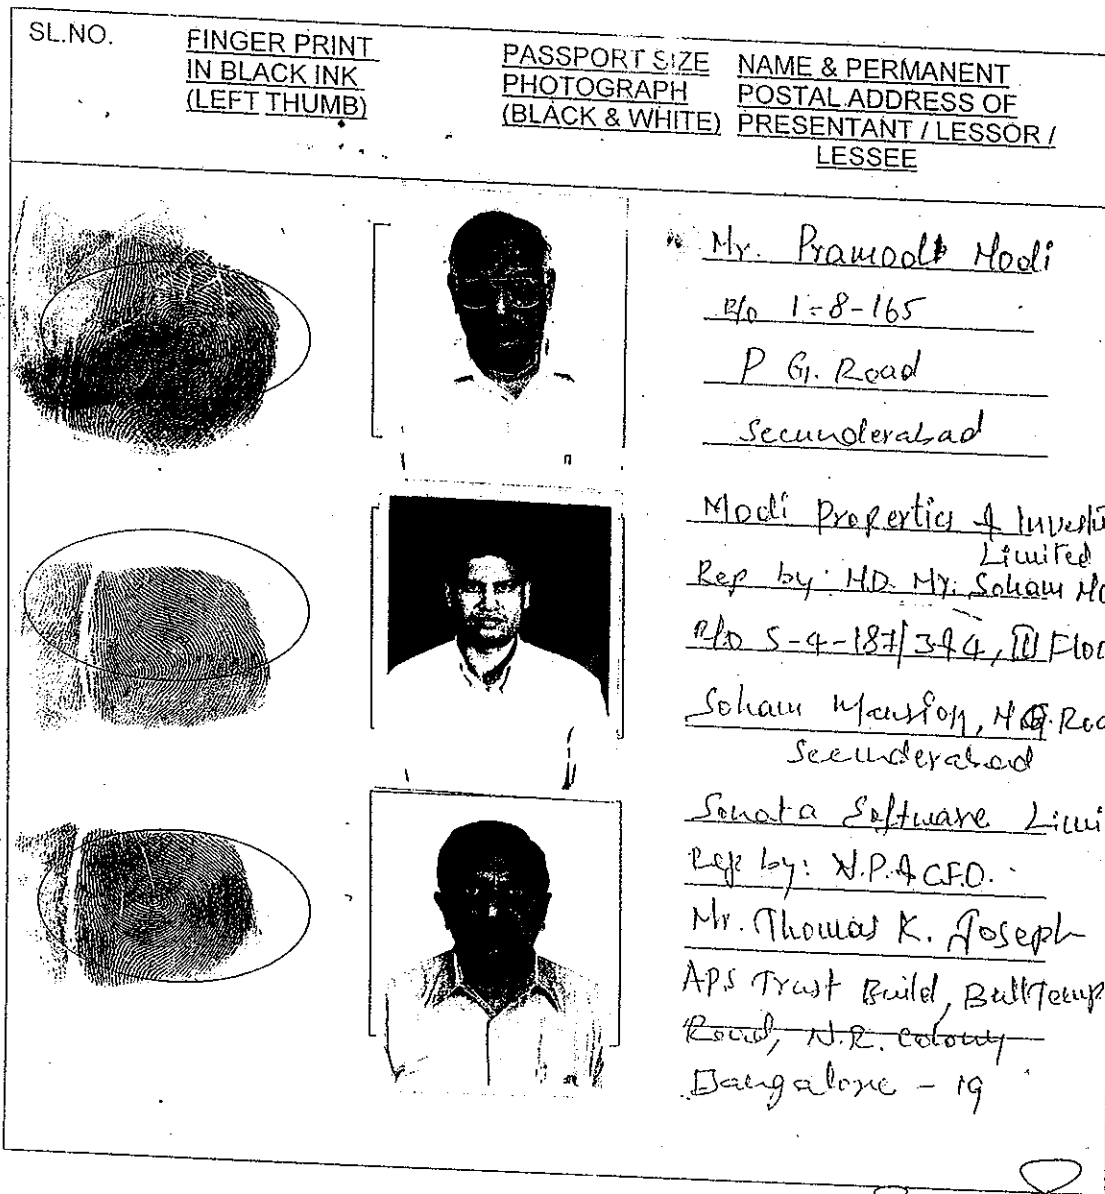 SL.NO.
FINGER PRINT
IN BLACK INK
(LEFT THUMB)
PASSPORT SIZE
PHOTOGRAPH
(BLACK & WHITE)
NAME & PERMANENT
POSTAL ADDRESS OF
PRESENTANT / LESSOR /
LESSEE
Mr. Pramod Modi
R/o 1-8-165
P G. Road
Secunderabad
Modi Properties &
Limited
Rep by: M.D. Mr. Soham
R/o 5-4-187/3&4, III
Soham Mansion, M.G.
Secunderabad
Sonata Software
Rep by: & C.F.O.
Mr. Thomas K. Joseph
APS Trust Build, Bull
Road, N.R. Colony
Bangalore - 19